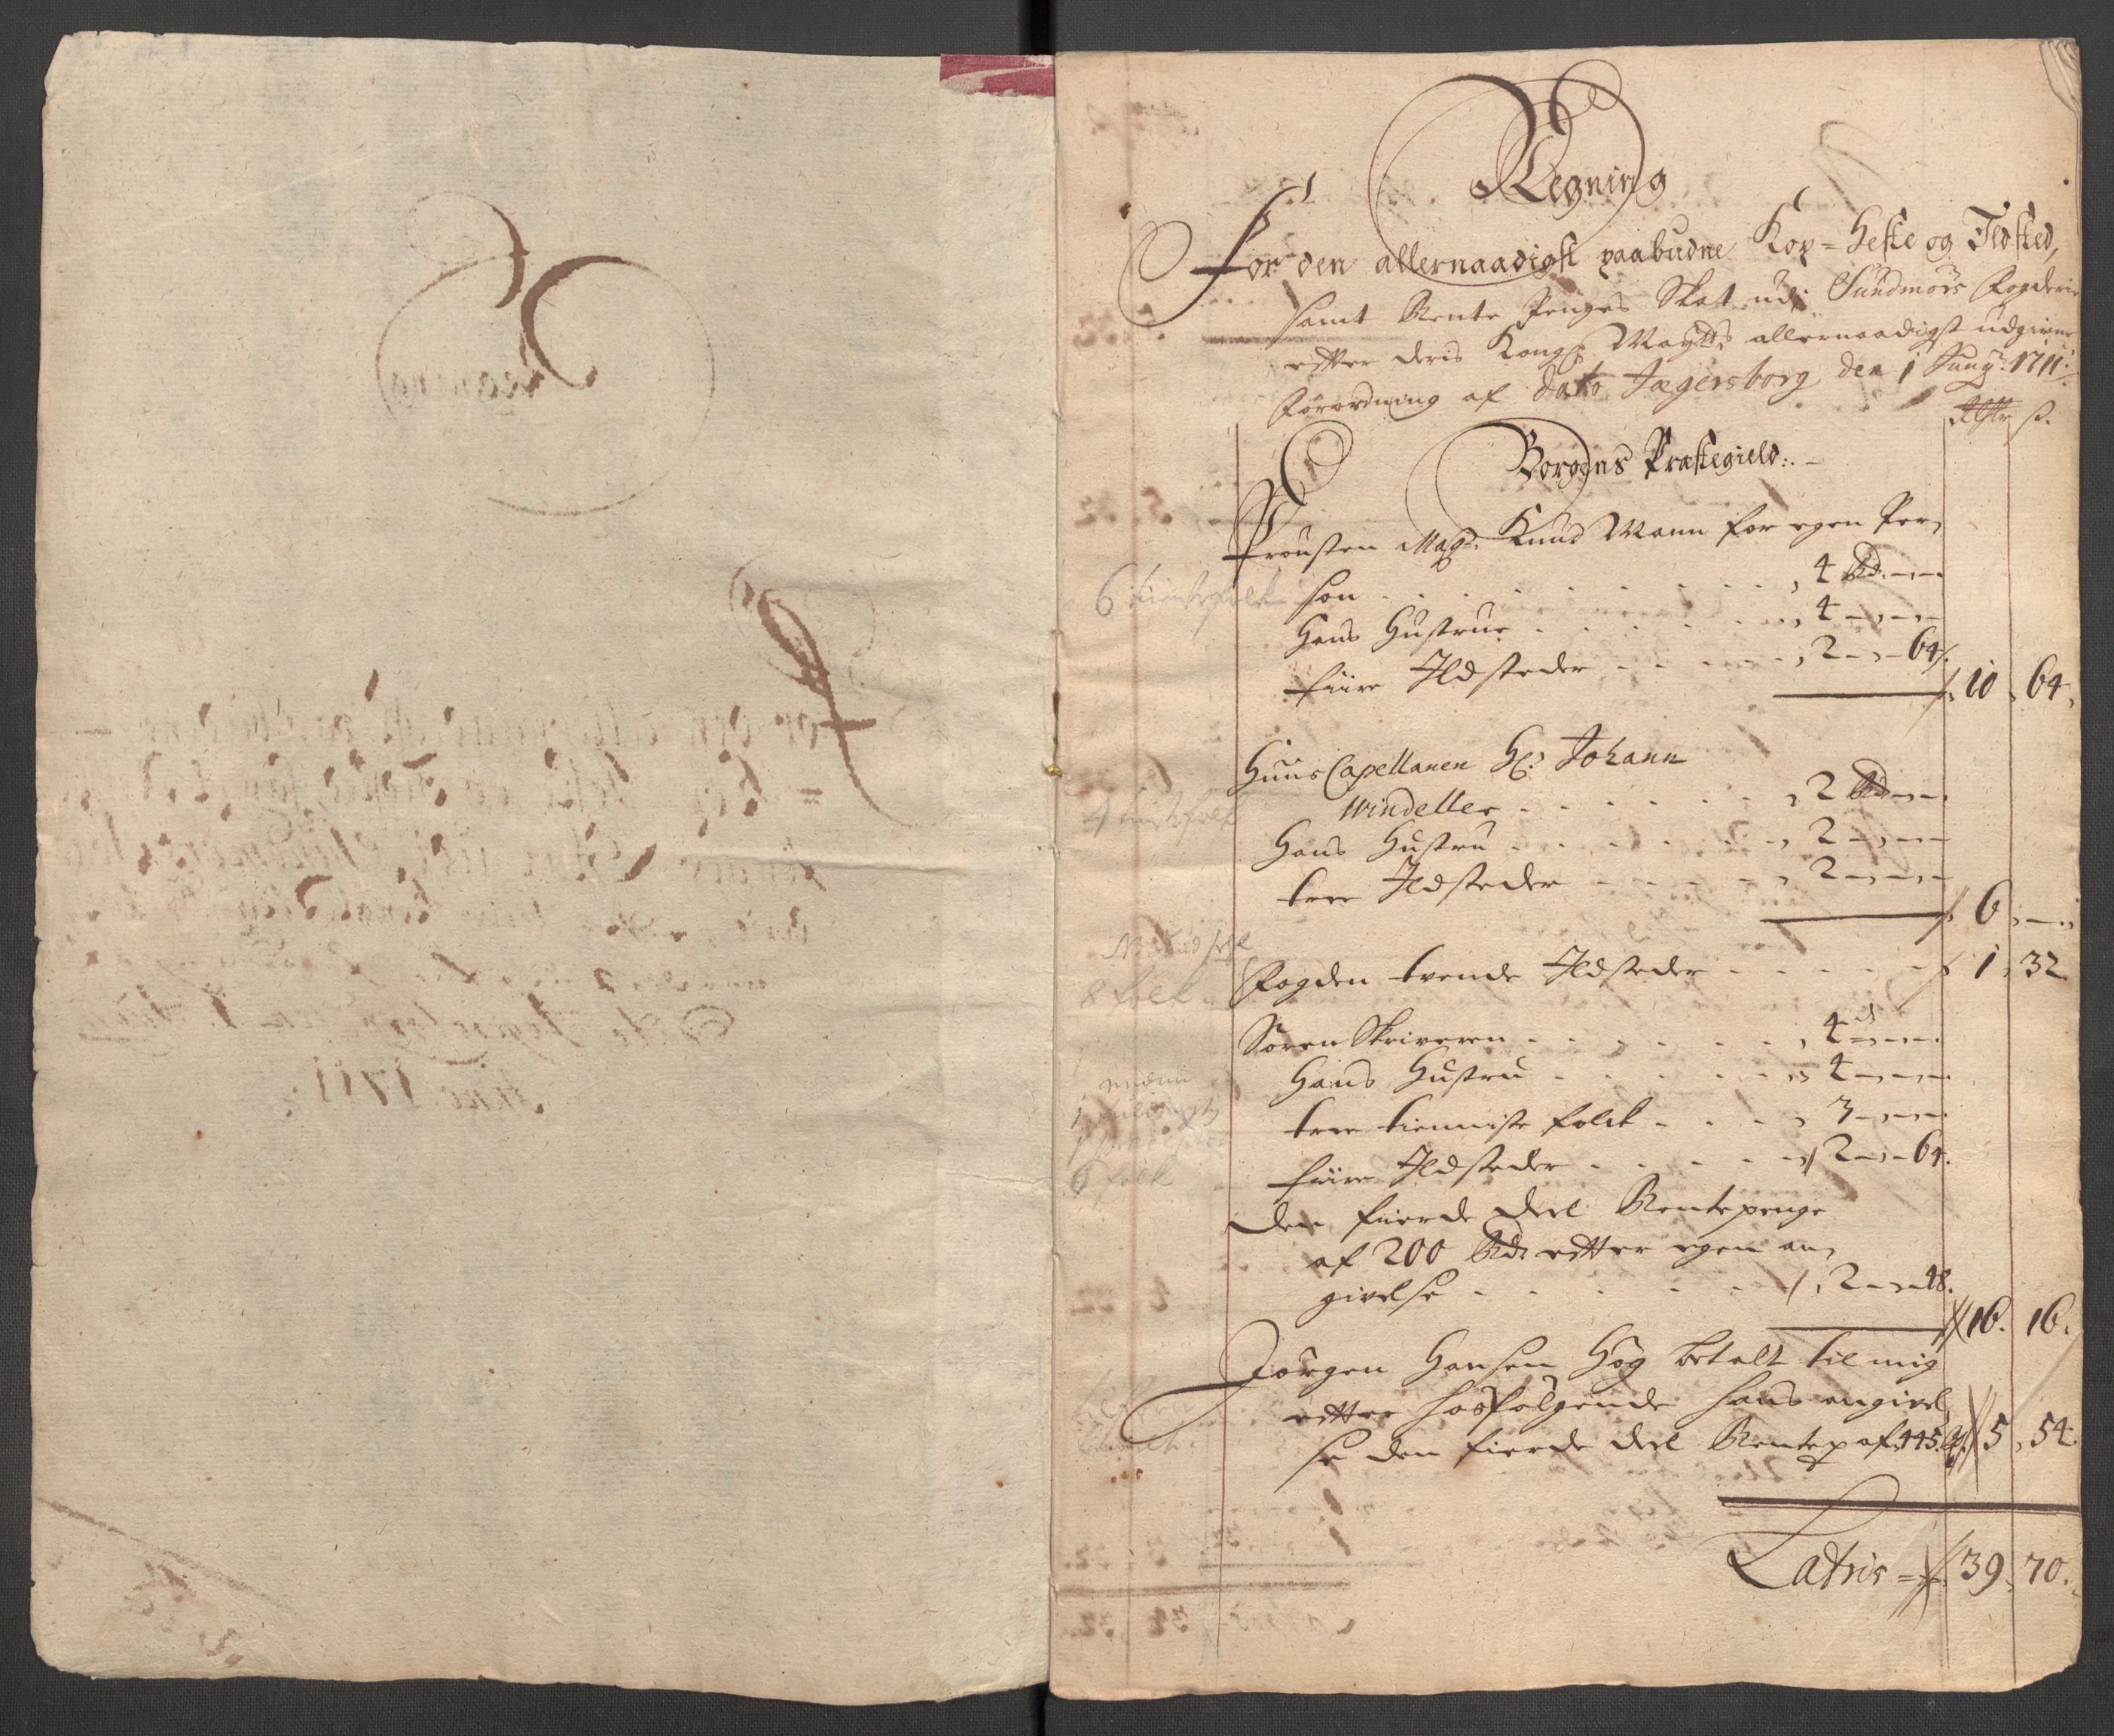 Regning
For den allernaadigst paabudne Kop= Heste og Ildsted,
samt Rente Penges Skat udj Sundmørs Fogderie
efter deris Kongl: Maytts allernaadigst udgivne
Forordning af dato Jægersborg den 1 Juny: 1711:
Rdlr ß.
Borgens Præstegield:.
Prousten Magr: Knud Mann for egen Per,
6 tienistefolk
son . . . . . . . , 4 Rd.
Hans Hustrue . . . . . , 4
fiire Ildsteder . . . . , 2 - 64.
10 , 64,
Huus Capellanen Hr: Johann
Windeller . . . . . , 2 Rd
Hans Hustru . . . . . , 2
tree Ildsteder . . . . , 2
6
Fogden tvende Ildsteder . . . . . 1 , 32
8 folk
Søren Skriveren . . . . . , 4
Hans Hustru . . . . . , 4
tree tienniste folck . . . , 3
fiire Ildsteder . . . . , 2 - 64.
6 folk
Den fierde deel Rentepenge
af 200 Rdr efter egen an,
givelse . . . . . , 2 - 48.
16. 16.
Jørgen Hansen Høg betalt til mig
efter hosfølgende hans angivel,
se den fierde deel Rentep af 445 5 , 54.
Latris = 39, 70.